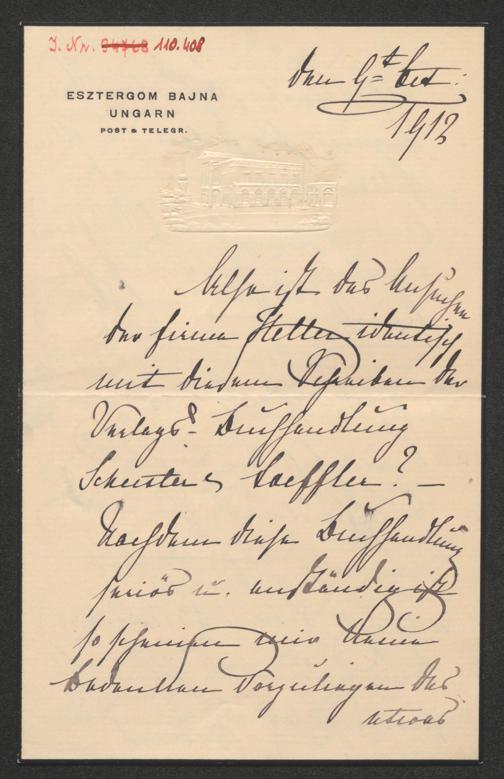 I. Nr. 94768 110.408
ESZTERGOM BAJNA
UNGARN
POST & TELEGR.
den 9t Oct:
1912
Also ist das Ansuchen
der firma Heller identisch
mit diesem Schreiben der
Verlags-Buchhandlung
Schuster & Loeffler? –
Nachdem diese Buchhandlung
seriös u. anständig ist
so scheinen mir keine
Bedenken vorzuliegen das